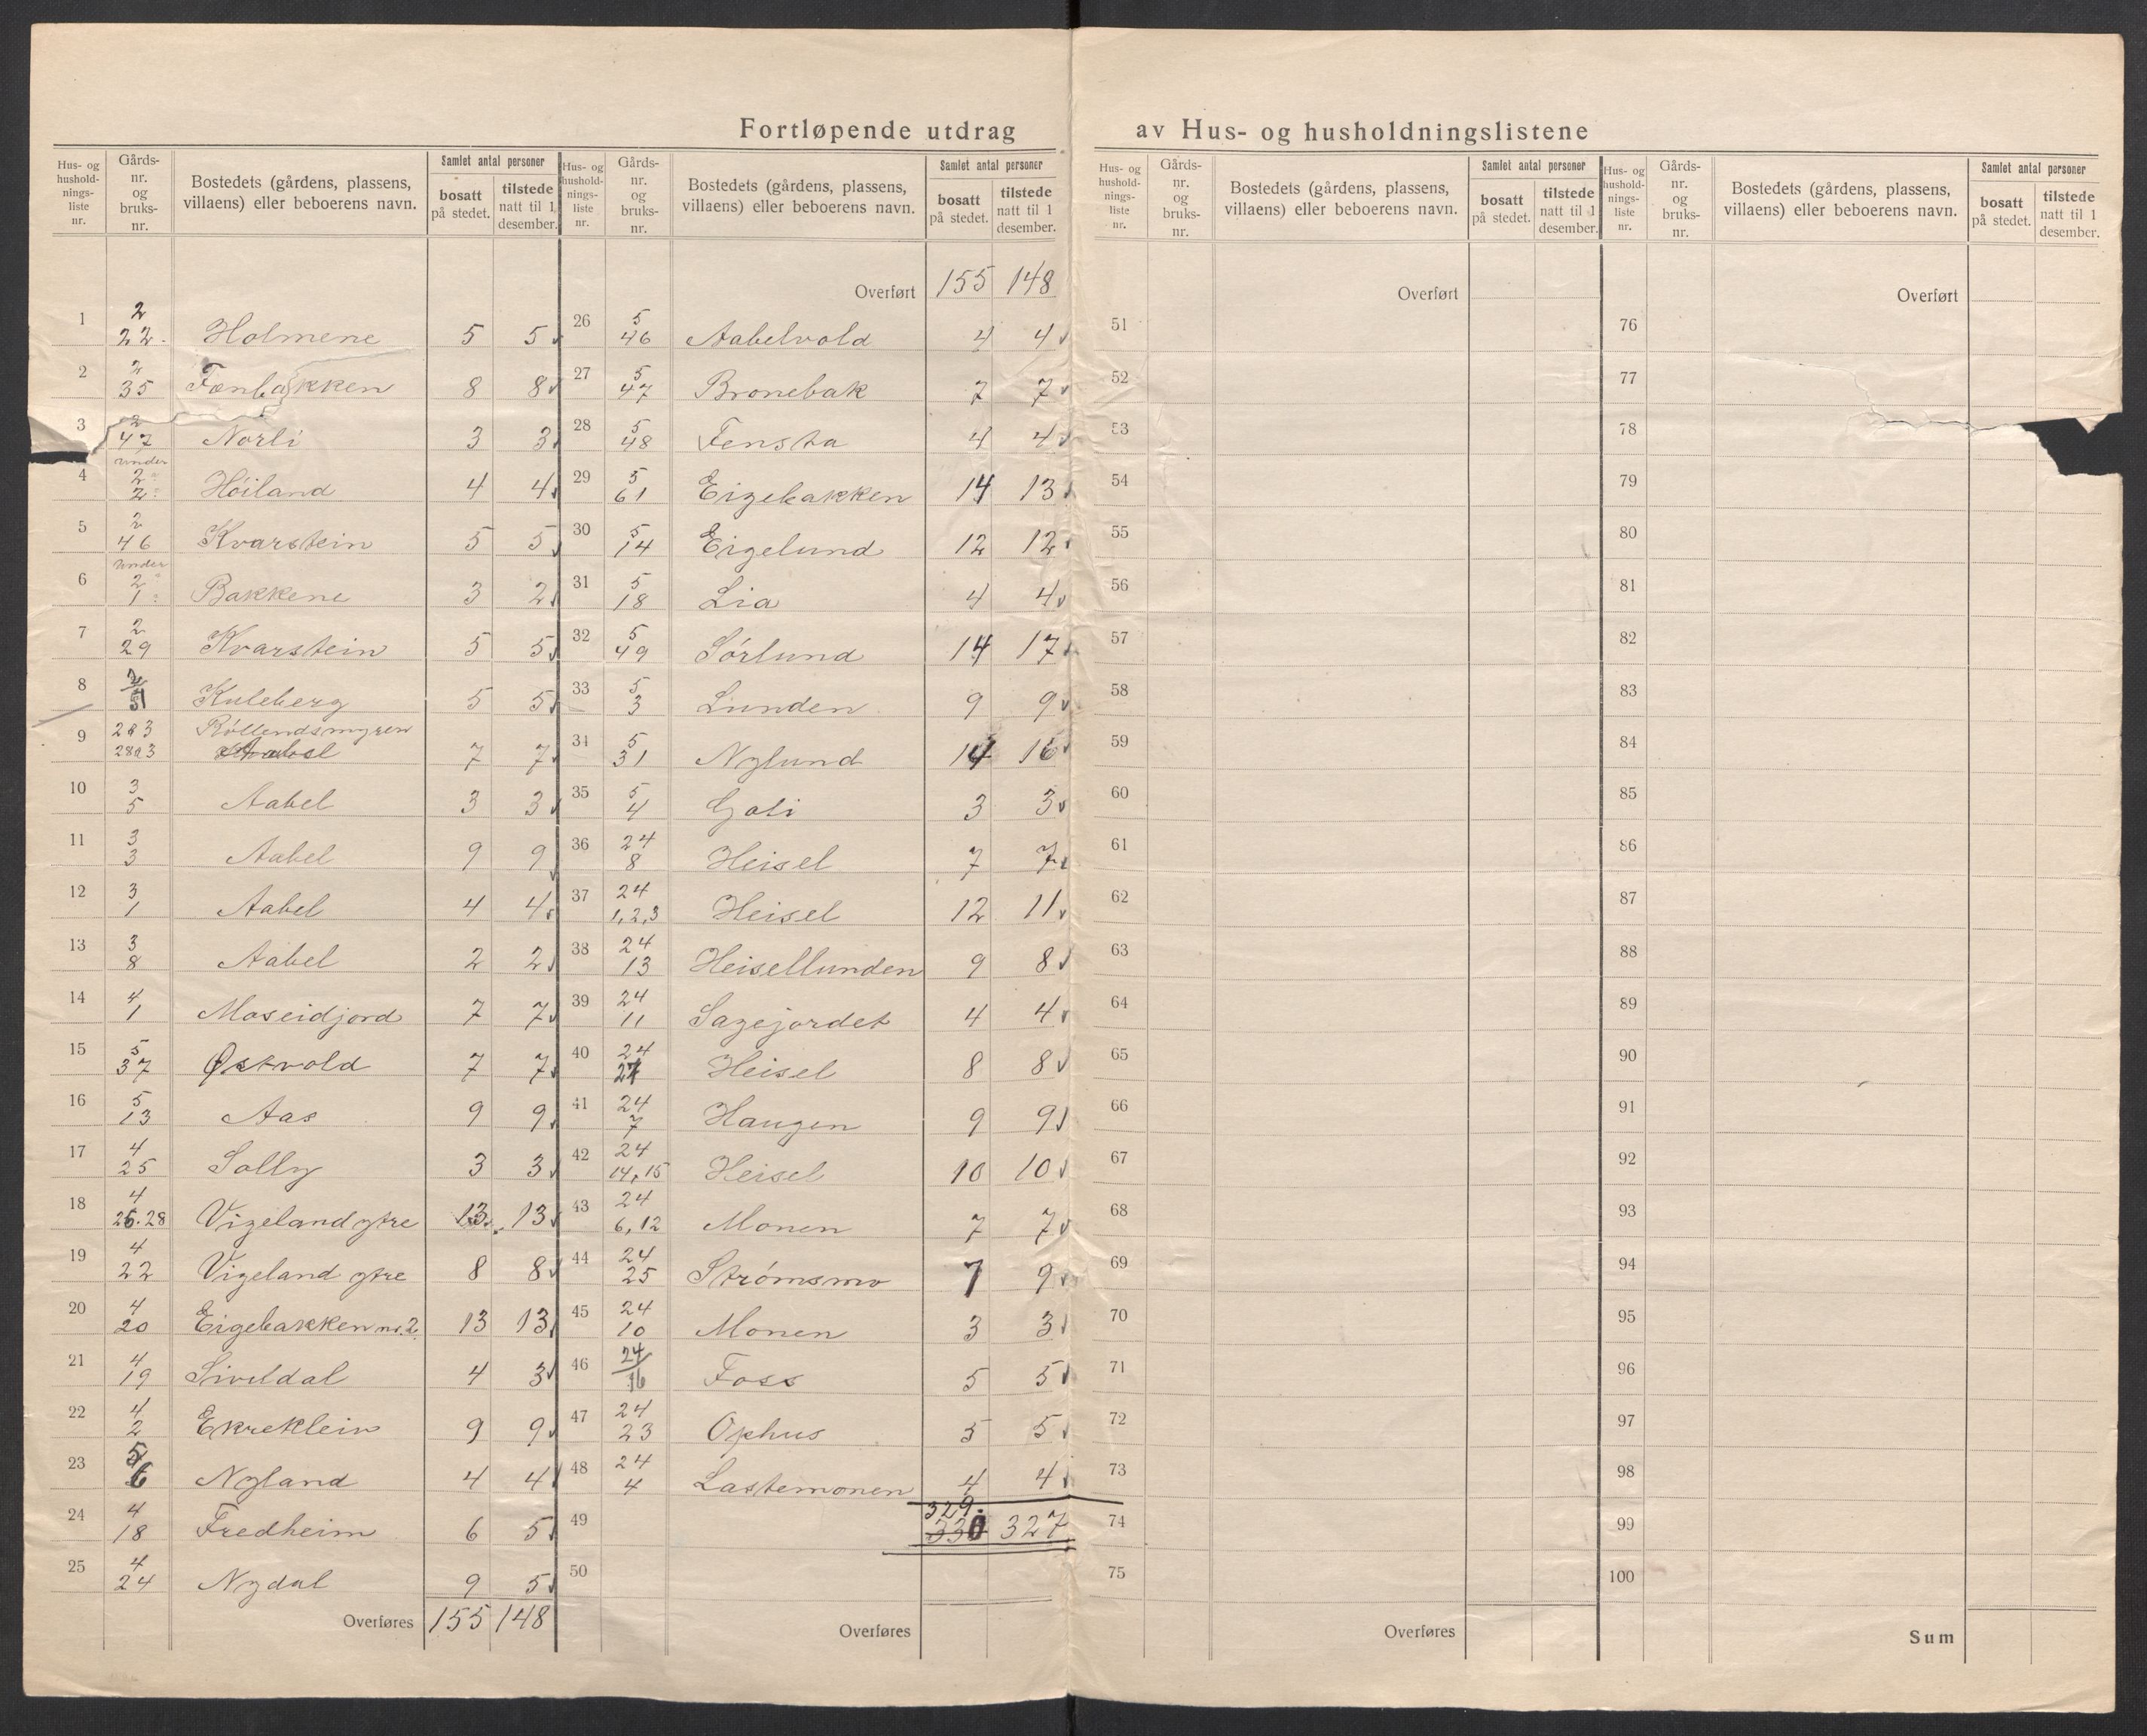 Fortløpende utdrag av Hus- og husholdningslistene
Hus- og hushold- nings- liste nr. | Gårds- nr. og bruks- nr. | Bostedets (gårdens, plassens, villaens) eller beboerens navn. | Samlet antal personer | bosatt på stedet. | tilstede natt til 1 desember.
1 2 22. Holmene 5 5
2 2 35 Fonbakken 8 8
3 2 47 Norli 3 3
4 under 2 2 Høiland 4 4
5 2 46 Kvarstein 5 5
6 under 2 1 Bakkene 3 2
7 2 29 Kvarstein 5 5
8 2/51 Kuleberg 5 5
9 Røllendsmyren 7 7
10 3 5 Aabel 3 3
11 3 3 Aabel 9 9
12 3 1 Aabel 4 4
13 3 8 Aabel 2 2
14 4 1 Moseidjord 7 7
15 5 37 Østvold 7 7
16 5 13 Aas 9 9
17 4 25 Solly 3 3
18 4 26.28 Vigeland ytre 13 13
19 4 22 Vigeland ytre 8 8
20 4 20 Eigebakken nr. 2 13 13
21 4 19 Siveldal 4 3
22 4 2 Ekreklein 9 9
23 5 6 Nyland 4 4
24 4 18 Fredheim 6 5
25 4 24 Nydal 9 5
Overføres 155 148
Hus- og hushold- nings- liste nr. | Gårds- nr. og bruks- nr. | Bostedets (gårdens, plassens, villaens) eller beboerens navn. | Samlet antal personer | bosatt på stedet. | tilstede natt til 1 desember.
Overført 155 148
26 5 46 Aabelvold 4 4
27 5 47 Bronebak 7 7
28 5 48 Fensta 4 4
29 5 61 Eigebakken 14 13
30 5 14 Eigelund 12 12
31 5 18 Lia 4 4
32 5 49 Sørlund 14 17
33 5 3 Lunden 9 9
34 5 31 Nylund 14 16
35 5 4 Goli 3 3
36 24 8 Heisel 7 7
37 24 1, 2, 3 Heisel 12 11
38 24 13 Heisellunden 9 8
39 24 11 Sagejordet 4 4
40 24 Heisel 8 8
41 24 7 Haugen 9 9
42 24 14, 15 Heisel 10 10
43 24 6, 12 Monen 7 7
44 24 25 Strømsmo 7 9
45 24 10 Monen 3 3
46 24/16 Foss 5 5
47 24 23 Ophus 5 5
48 24 4 Lastemonen 4 4
329.
49 330 327
50
Overføres
Hus- og hushold- nings- liste nr. | Gårds- nr. og bruks- nr. | Bostedets (gårdens, plassens, villaens) eller beboerens navn. | Samlet antal personer | bosatt på stedet. | tilstede natt til 1 desember.
Overført
51
52
53
54
55
56
57
58
59
60
61
62
63
64
65
66
67
68
69
70
71
72
73
74
75
Overføres
Hus- og hushold- nings- liste nr. | Gårds- nr. og bruks- nr. | Bostedets (gårdens, plassens, villaens) eller beboerens navn. | Samlet antal personer | bosatt på stedet. | tilstede natt til 1 desember.
Overført
76
77
78
79
80
81
82
83
84
85
86
87
88
89
90
91
92
93
94
95
96
97
98
99
100
Sum